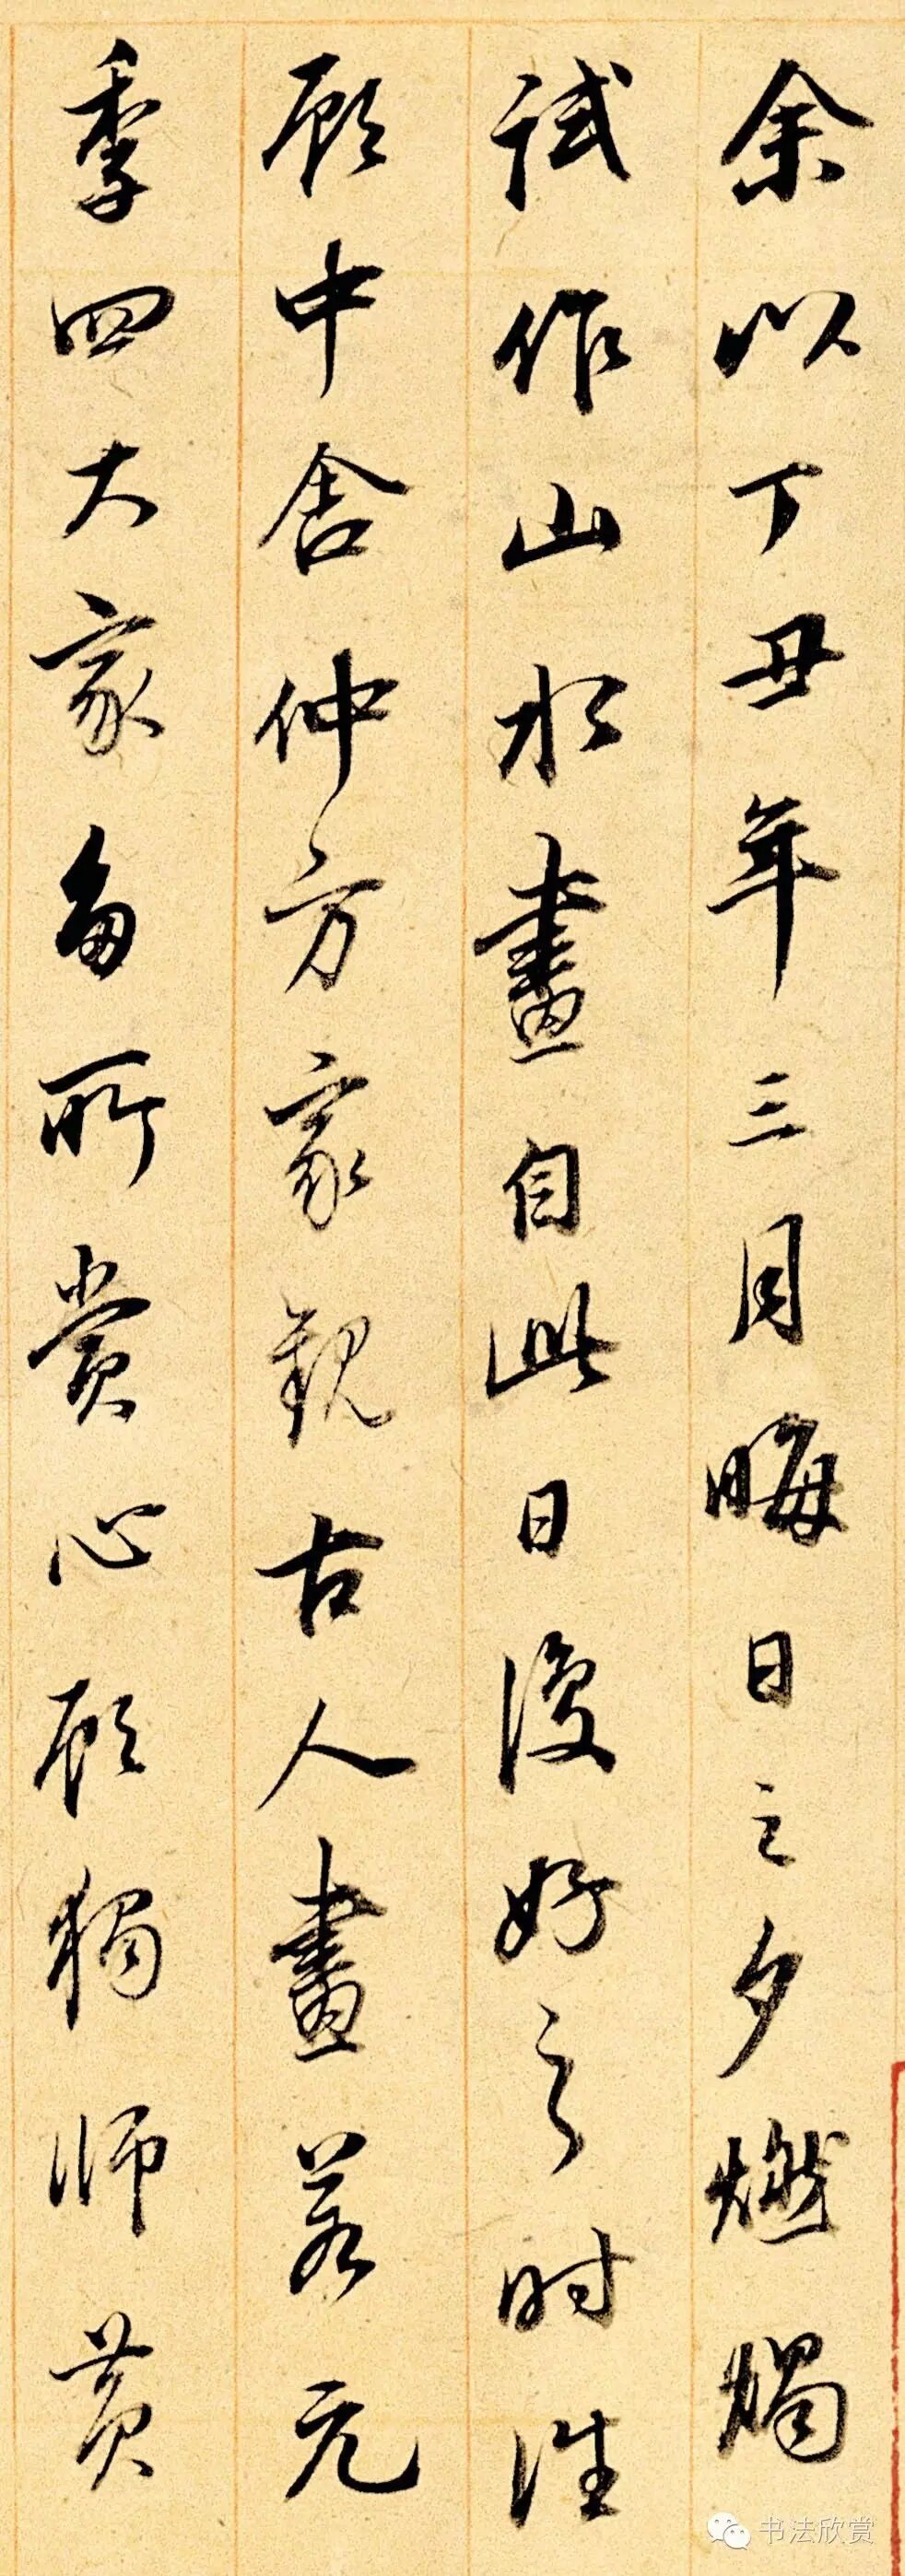 余以丁丑年三月晦日之夕燃燭
試作山水畫自此日復好之时往
顾中舍仲方家觀古人畫若元
季四大家多所賞心顾獨師黄
书法欣赏